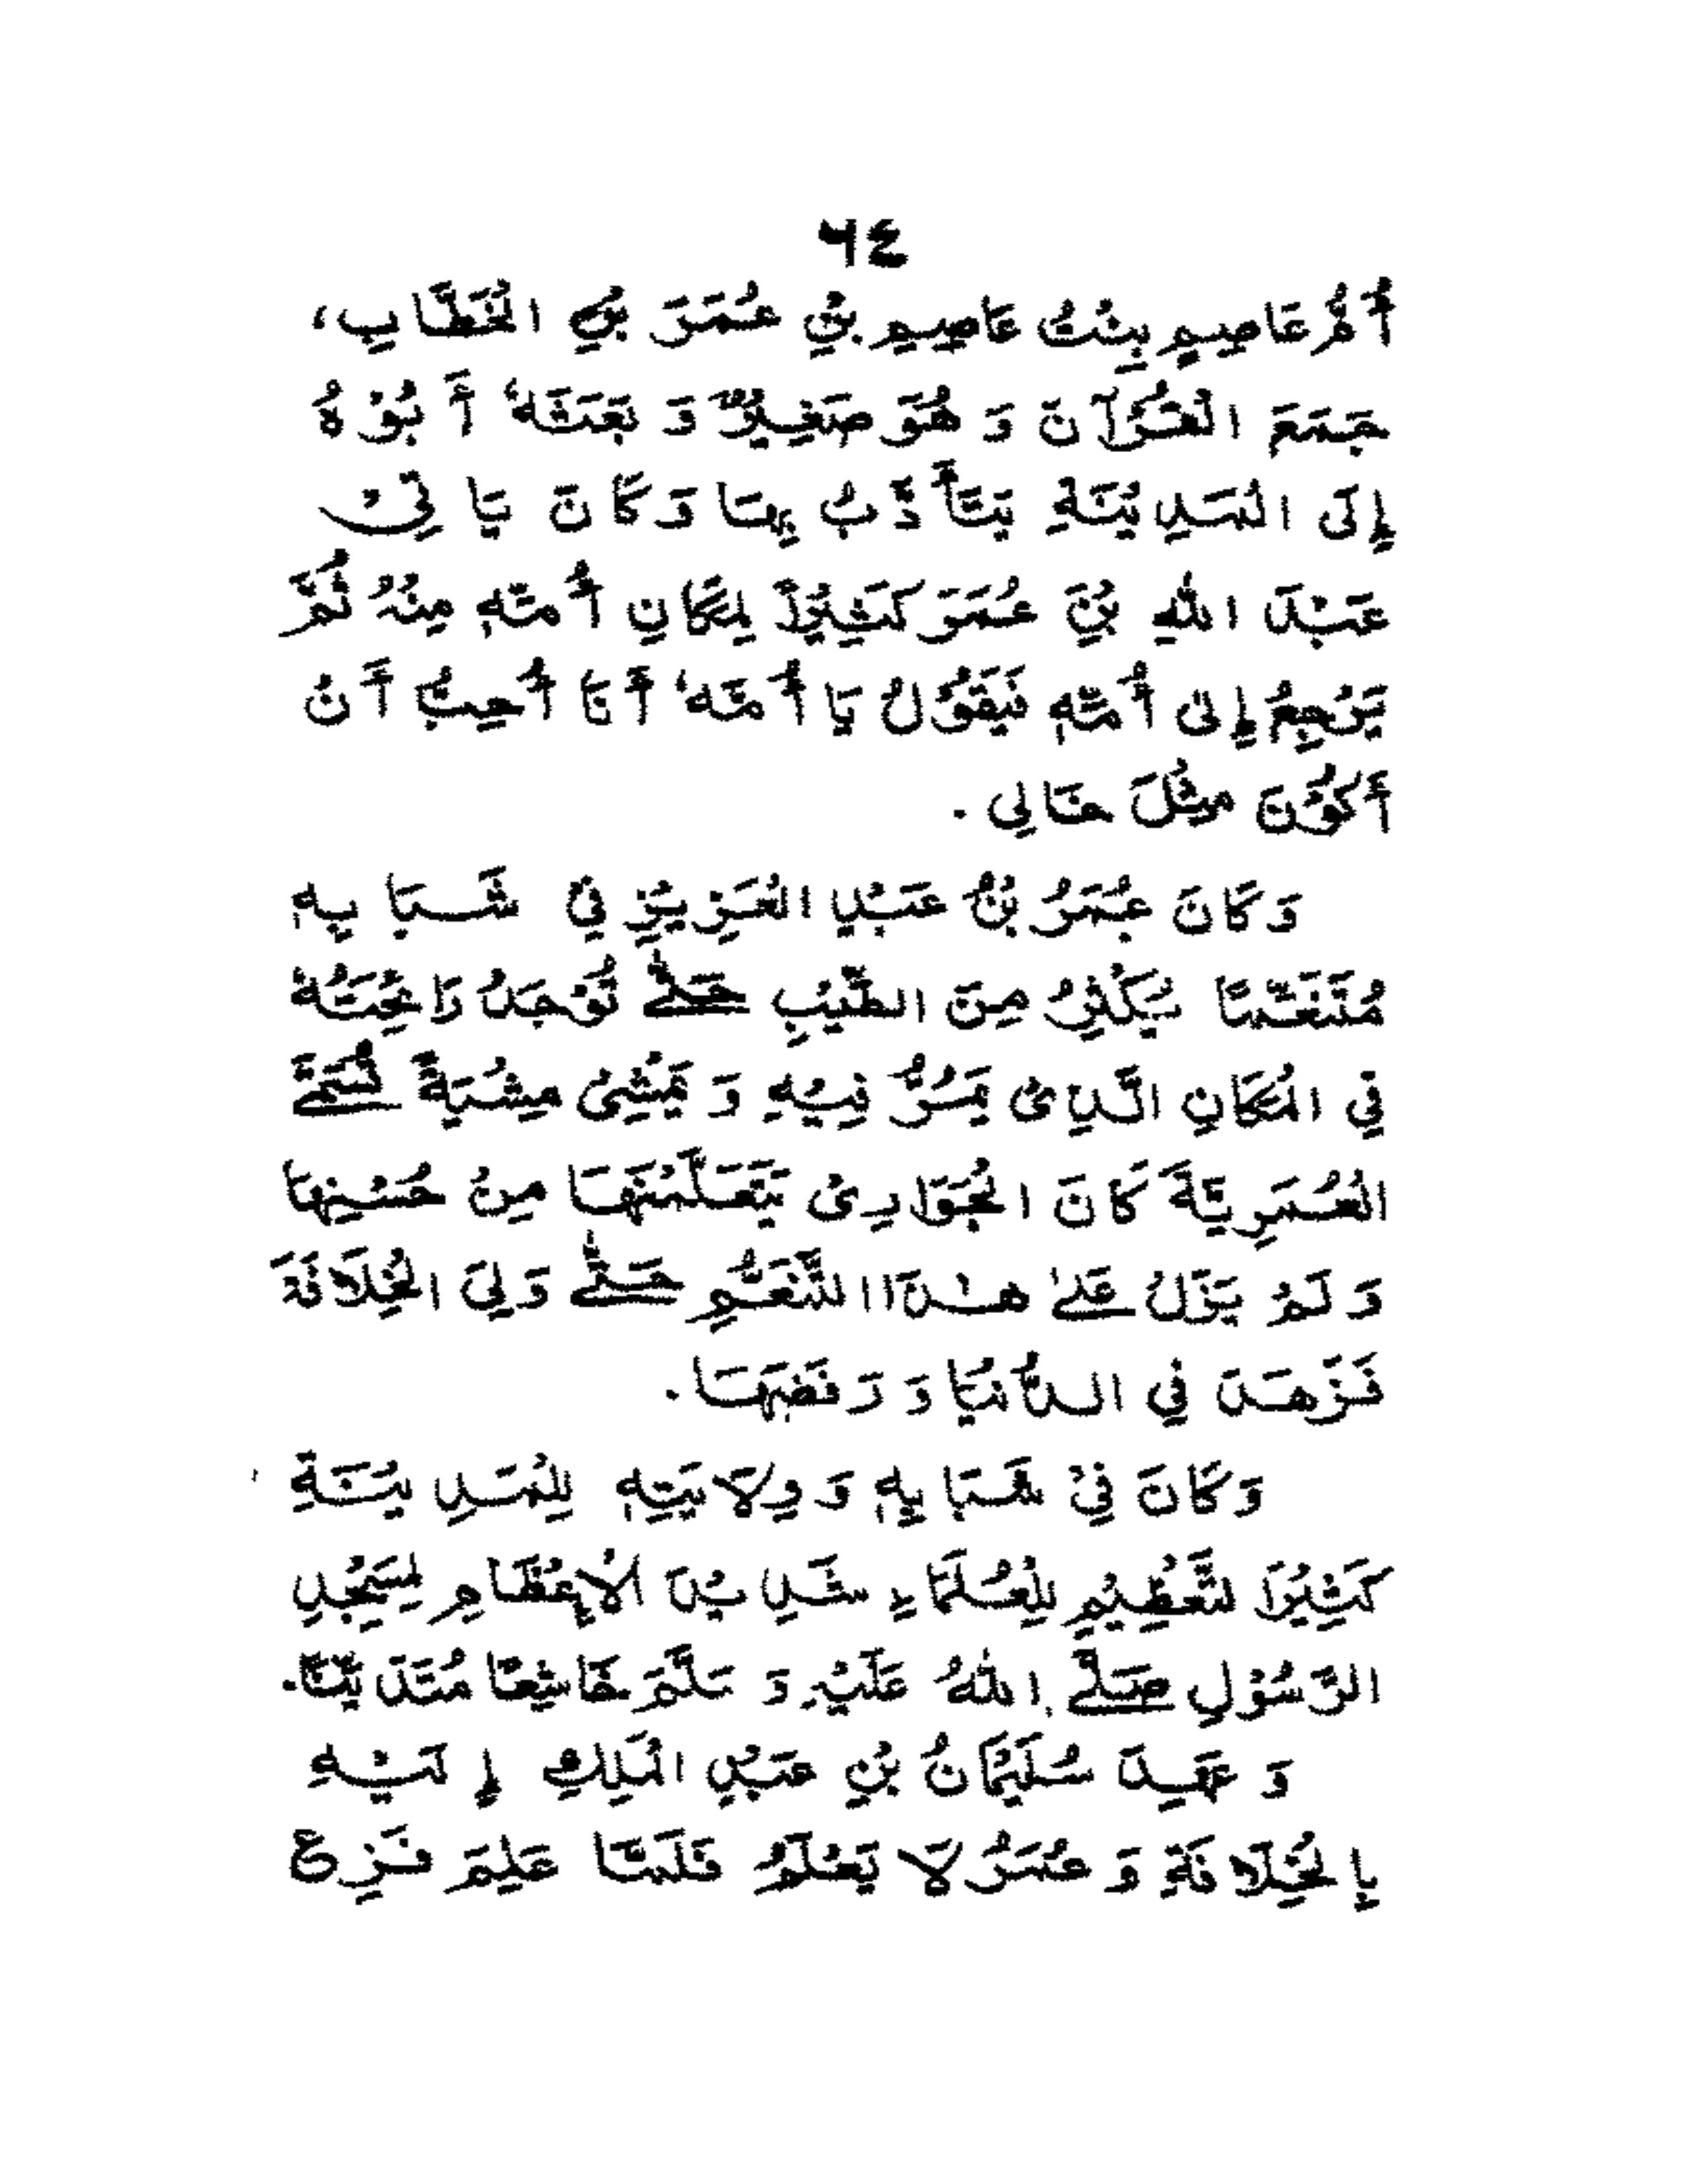 ٦٤
أُمُّ عَاصِمٍ بِنْتُ عَاصِمِ بْنِ عُمَرَ بْنِ الْخَطَّابِ،
جَمَعَ الْقُرْآنَ وَ هُوَ صَغِيْرٌ وَ بَعَثَهُ أَبُوْهُ
إِلَى الْمَدِيْنَةِ يَتَأَدَّبُ بِهَا وَ كَانَ يَاتِيْ
عَبْدَ اللهِ بْنَ عُمَرَ كَثِيْرًا لِمَكَانِ أُمِّهِ مِنْهُ ثُمَّ
يَرْجِعُ إِلى أُمِّهِ فَيَقُوْلُ يَا أُمَّهُ أَنَا أُحِبُّ أَنْ
أَكُوْنَ مِثْلَ خَالِي .
وَ كَانَ عُمَرُ بْنُ عَبْدِ الْعَزِيْزِ فِي شَبَابِهِ
مُتَنَعِّمًا يُكْثِرُ مِنَ الطِّيْبِ حَتّٰى تُوْجَدُ رَائِحَتُهُ
فِي الْمَكَانِ الَّذِىْ يَمُرُّ فِيْهِ وَ يَمْشِىْ مِشْيَةً تُسَمّٰى
الْعُمَرِيَّةَ كَانَ الْجَوَارِىْ يَتَعَلَّمْنَهَا مِنْ حُسْنِهَا
وَ لَمْ يَزَلْ عَلىٰ هٰذَا التَّنَعُّمِ حَتّٰى وَلِيَ الْخِلَافَةَ
فَزَهَدَ فِي الدُّنْيَا وَ رَفَضَهَا.
وَ كَانَ فِيْ شَبَابِهِ وَ وِلَايَتِهِ لِلْمَدِيْنَةِ
كَثِيْرَ التَّعْظِيْمِ لِلْعُلَمَاءِ شَدِيْدَ الْإِعْظَامِ لِمَسْجِدِ
الرَّسُوْلِ صَلَّى اللهُ عَلَيْهِ وَ سَلَّمَ خَاشِعًا مُتَدَيِّنًا.
وَ عَهِدَ سُلَيْمَانُ بْنِ عَبْدِ الْمَلِكِ إِلَيْهِ
بِالْخِلَافَةِ وَ عُمَرُ لَا يَعْلَمُ فَلَمَّا عَلِمَ فَزِع